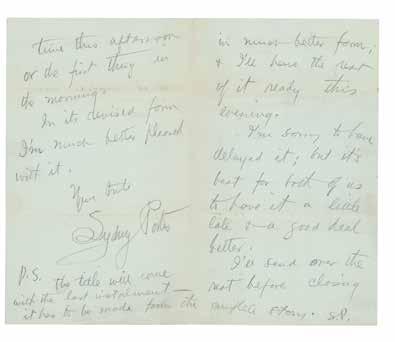 time this afternoon
or the first thing in
the morning.
In its revised form
I'm much better pleased
with it.
Yours truly
Sydney Porter
P.S. The title will come
with the last instalment—
it has to be made from the complete story. S.P.
in much better form,
& I'll have the rest
of it ready this
evening.
I'm sorry to have
delayed it; but it's
best for both of us
to have it a little
late & a good deal
better.
I'll send over the
rest before closing